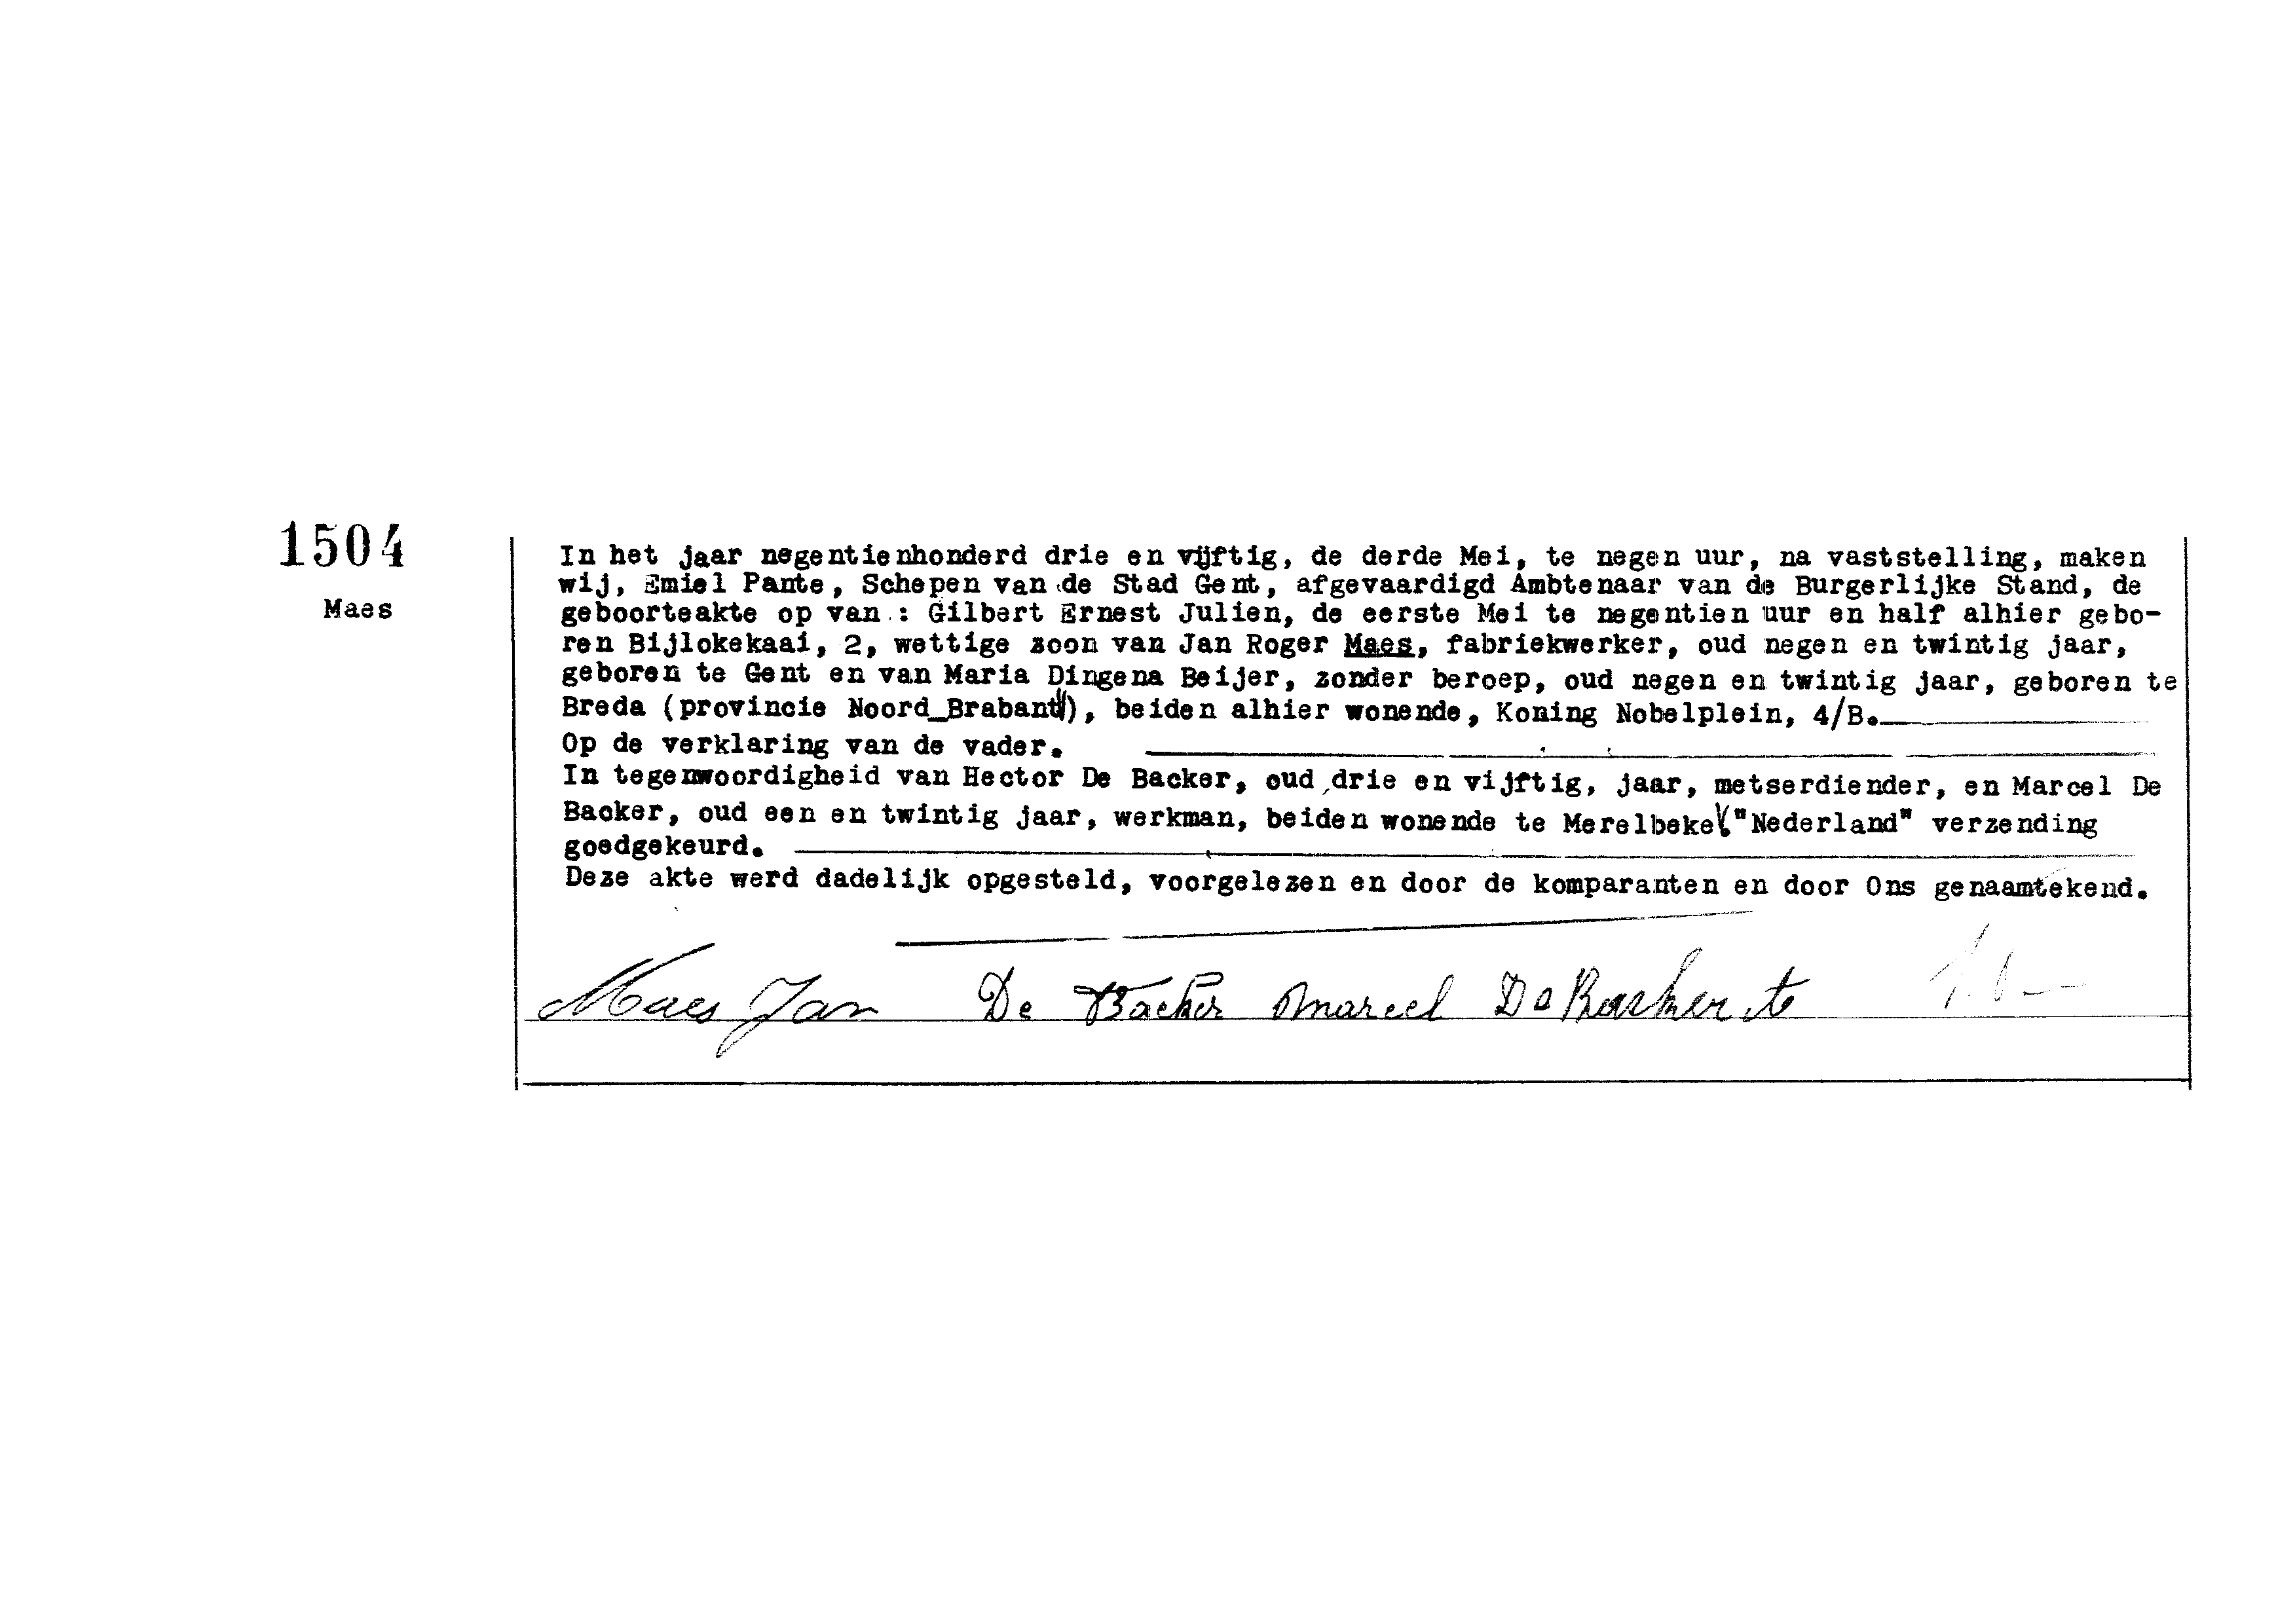 1504
Maes
In het jaar negentienhonderd drie en vijftig, de derde Mei, te negen uur, na vaststelling, maken
wij, Emiel Pante, Schepen van de Stad Gent, afgevaardigd Ambtenaar van de Burgerlijke Stand, de
geboorteakte op van : Gilbert Ernest Julien, de eerste Mei te negentien uur en half alhier gebo-
ren Bijlokekaai, 2, wettige zoon van Jan Roger Maes, fabriekwerker, oud negen en twintig jaar,
geboren te Gent en van Maria Dingena Beijer, zonder beroep, oud negen en twintig jaar, geboren te
Breda (provincie Noord_Brabant), beiden alhier wonende, Koning Nobelplein, 4/B.
Op de verklaring van de vader.
In tegenwoordigheid van Hector De Backer, oud drie en vijftig, jaar, metserdiender, en Marcel De
Backer, oud een en twintig jaar, werkman, beiden wonende te Merelbeke. "Nederland" verzending
goedgekeurd.
Deze akte werd dadelijk opgesteld, voorgelezen en door de komparanten en door Ons genaamtekend.
Maes Jan De Backer Marcel